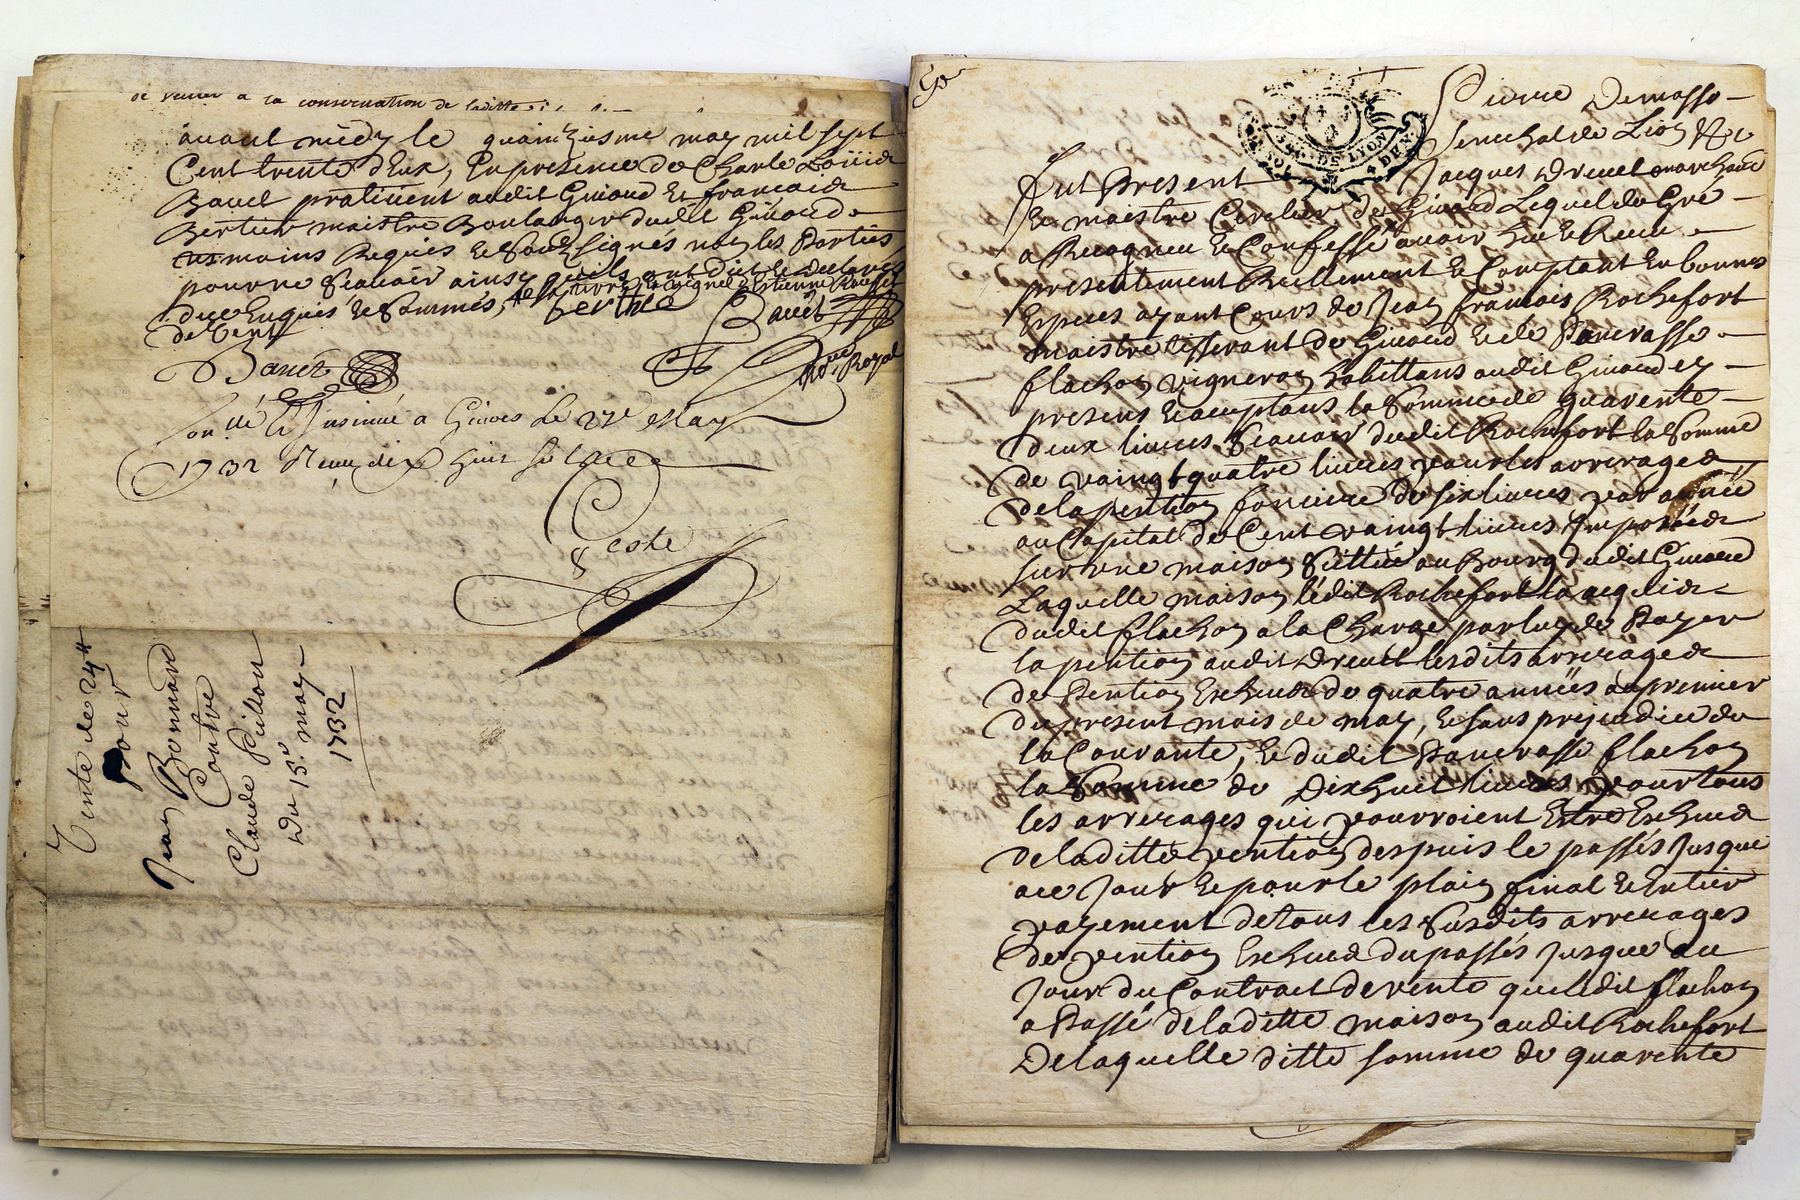 de veiller a la conservation de laditte
avant midy le quainziesme may mil sept
Cent trente deux, En presence de Charle Loüis
Bauet pratitient audit Giuord Et françois
Bertier maistre Boulanger dudit Giuord
tesmoins Requis Et Soubsignés non les Parties
pour ne Scauoir ainsy quils ont dit et declaré
de ce Enquis Et Sommés,
de Vent
Berthie
Bauet
Bauet
No.re Royal
Con.lé & Insinué a Giuors Le 22e May
1732 Reçu dix huit sols
Geste
Vente de 24#
pour
Jean Bonnard
Contre
Claude Pillon
Du 15.e may
1732
Pierre Demasso
Senechal de Lion &c
GEN. DE LYON
Fut Present Jacques Dreuet marchand
Et maistre Cerclier de Giuord Lequel de Gré
a Recogneu Et Confessé auoir Heu Et Receu
presentement Reellement Et Comptant En bonnes
Especes ayant Cours de Jean françois Rochefort
maistre tisserant de Giuord Et de Pancrasse
flachon vigneron habittans audit Giuord ey
presens Et acceptans la Somme de quarente
deux liures, Scauoir dudit Rochefort la Somme
de vaingt quatre liures pour les arrerages
de la pention fonciere de six liures par année
au Capital de Cent vaingt liures Imposée
sur vne maison Scittüe au Bourg dudit Giuord
Laquelle maison ledit Rochefort la acquis
dudit flachon a la Charge par luy de Payer
la pention audit Dreuet lesdits arrerages
de Pention Escheus de quatre années au premier
du present mois de may, Et sans prejudice de
la Courante, Et dudit Pancrasse flachon
la Somme de Dix huit liures pour tous
les arrerages qui pourroient Estre Escheus
de laditte pention despuis le passés Jusqué
a ce Jour Et pour le plain final Et Entier
payement de tous les Susdits arrerages
de pention Escheus du passés Jusque au
Jour du Contract de vente que ledit flachon
a Passé de laditte maison audit Rochefort
De laquelle ditte somme de quarente